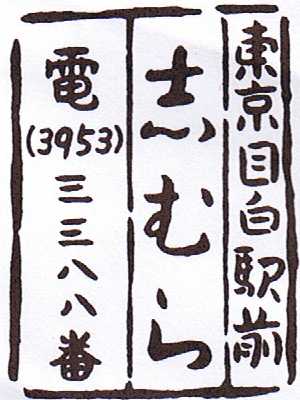 東京目白駅前
志むら
電(3953)三三八八番